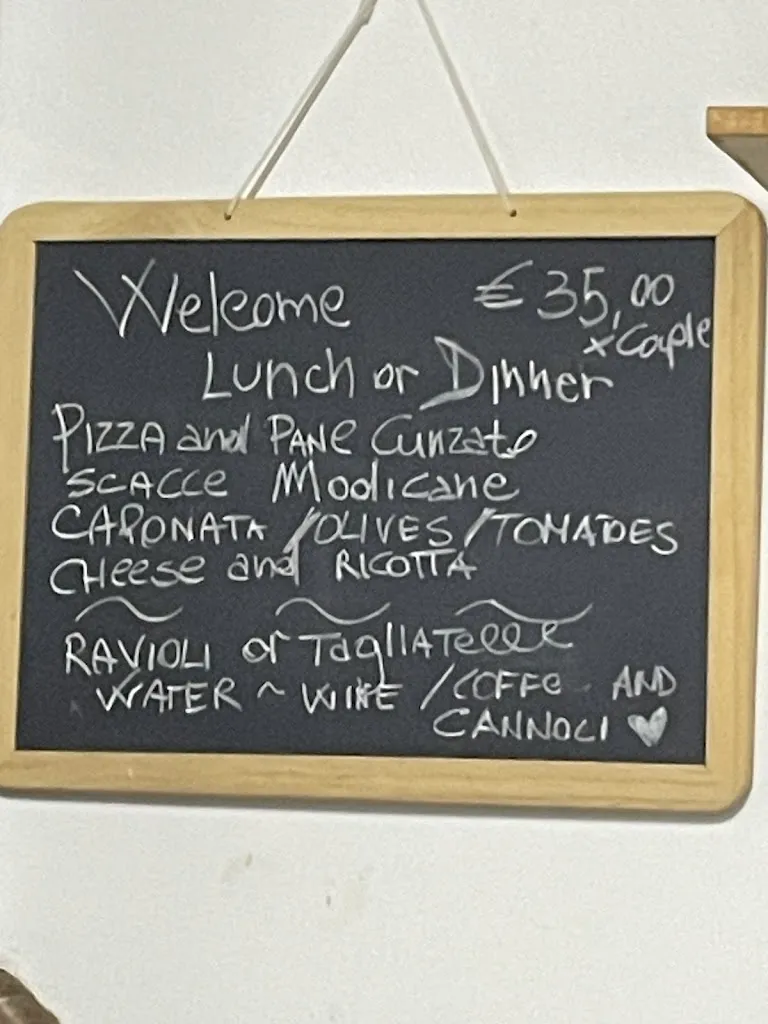 Welcome € 35,00
x Cople
Lunch or Dinner
PIZZA and PANE Cunzato
SCACCE Modicane
CAPONATA /OLIVES/TOMATOES
CHeese and RICOTTA
RAVIOLI or TagLIATelle
WATER ~ WINE /COFFe AND
CANNOLI ♥